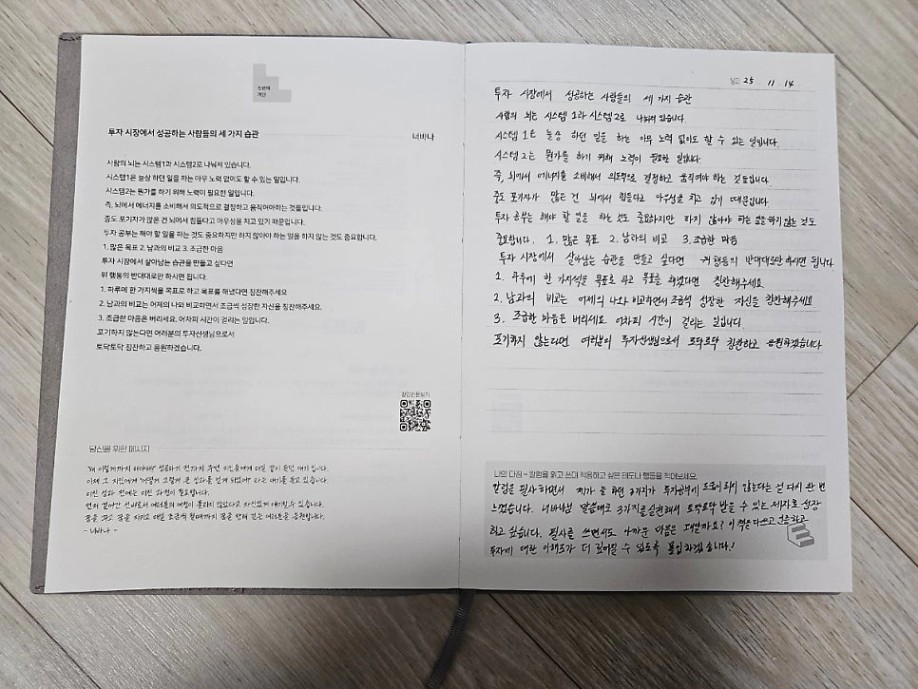 첫번째
계단
투자 시장에서 성공하는 사람들의 세 가지 습관
너바나
사람의 뇌는 시스템1과 시스템2로 나눠져 있습니다.
시스템1은 늘상 하던 일을 하는 아무 노력 없이도 할 수 있는 일입니다.
시스템2는 뭔가를 하기 위해 노력이 필요한 일입니다.
즉, 뇌에서 에너지를 소비해서 의도적으로 결정하고 움직여야하는 것들입니다.
중도 포기자가 많은 건 뇌에서 힘들다고 아우성을 치고 있기 때문입니다.
투자 공부는 해야 할 일을 하는 것도 중요하지만 하지 않아야 하는 일을 하지 않는 것도 중요합니다.
1. 많은 목표 2. 남과의 비교 3. 조급한 마음
투자 시장에서 살아남는 습관을 만들고 싶다면
위 행동의 반대대로만 하시면 됩니다.
1. 하루에 한 가지씩을 목표로 하고 목표를 해냈다면 칭찬해주세요
2. 남과의 비교는 어제의 나와 비교하면서 조금씩 성장한 자신을 칭찬해주세요.
3. 조급한 마음은 버리세요. 어차피 시간이 걸리는 일입니다.
포기하지 않는다면 여러분의 투자선생님으로서
토닥토닥 칭찬하고 응원하겠습니다.
당신을 위한 메시지
- 너바나 -
날짜 25 11 14
투자 시장에서 성공하는 사람들의 세 가지 습관
사람의 뇌는 시스템 1과 시스템2로 나눠져 있습니다.
시스템 1은 늘상 하던 일을 하는 아무 노력 없이도 할 수 있는 일입니다.
시스템 2는 뭔가를 하기 위해 노력이 필요한 일입니다.
즉, 뇌에서 에너지를 소비해서 의도적으로 결정하고 움직여야 하는 것들입니다.
중도 포기자가 많은 건 뇌에서 힘들다고 아우성을 치고 있기 때문입니다.
투자 공부는 해야 할 일을 하는 것도 중요하지만 하지 않아야 하는 일을 하지 않는 것도
중요합니다. 1. 많은 목표 2. 남과의 비교 3. 조급한 마음
투자 시장에서 살아남는 습관을 만들고 싶다면 위 행동의 반대대로만 하시면 됩니다
1. 하루에 한 가지씩을 목표로 하고 목표를 해냈다면 칭찬해주세요
2. 남과의 비교는 어제의 나와 비교하면서 조금씩 성장한 자신을 칭찬해주세요
3. 조급한 마음은 버리세요 어차피 시간이 걸리는 일입니다.
포기하지 않는다면 여러분의 투자선생님으로서 토닥토닥 칭찬하고 응원하겠습니다
나의 다짐 - 칼럼을 읽고 쓰며 적용하고 싶은 태도나 행동을 적어보세요.
칼럼을 필사하면서 제가 늘 하던 3가지가 투자공부에 도움이 되지 않는다는 걸 다시 한 번
느꼈습니다. 너바나님 말씀대로 3가지를 실천해서 토닥토닥 받을 수 있는 제자로 성장
하고 싶습니다. 필사를 쓰면서도 아까운 마음은 왜일까요? 이 책을 다 쓰고
투자에 대한 이해도가 더 깊어질 수 있도록 몰입하겠습니다!